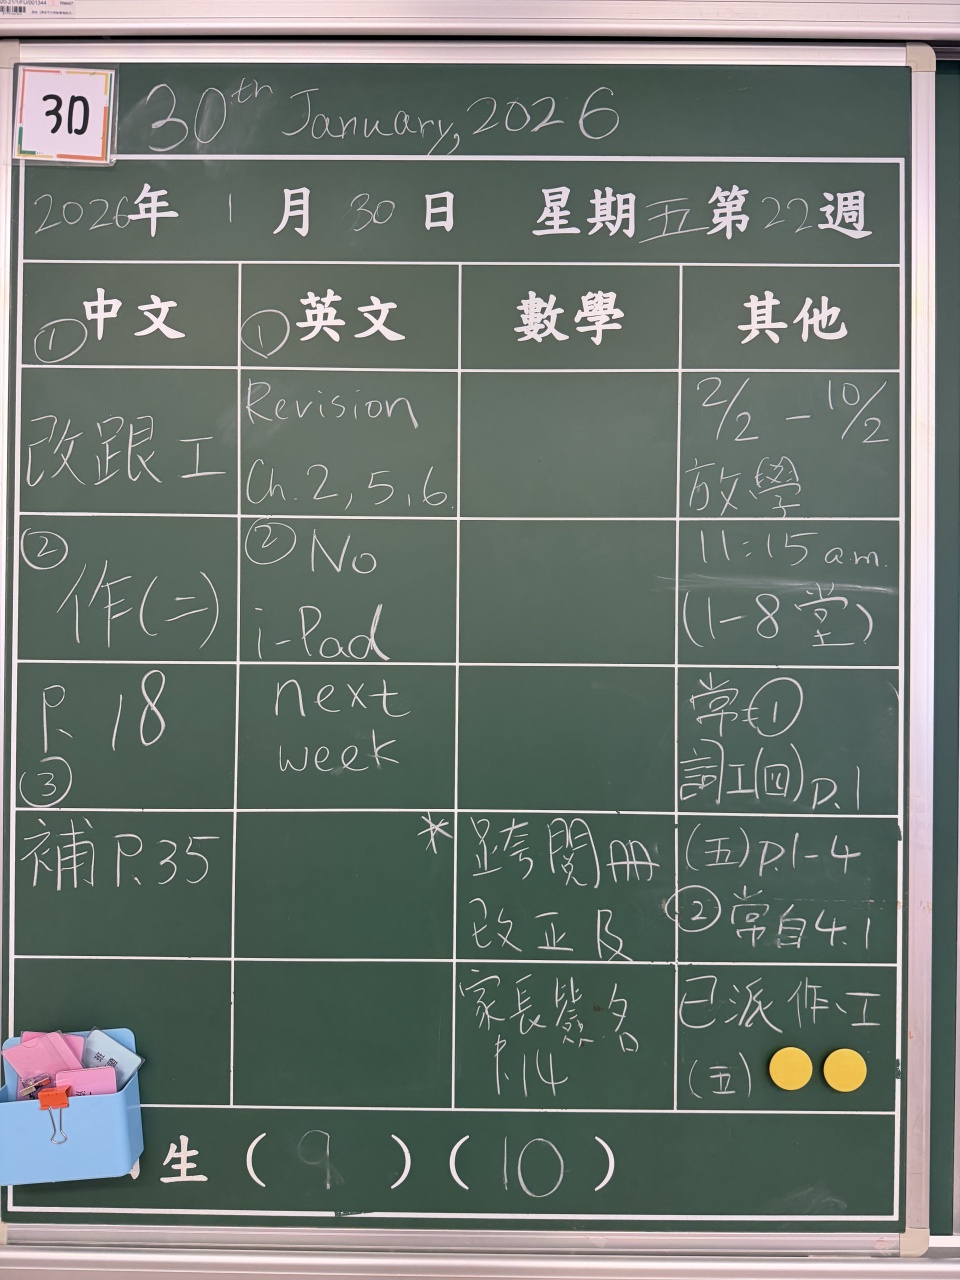 30
30th January, 2026
2026年 1 月 30 日 星期五第22週
① 中文
改跟工
② 作(二)
P. 18
③
補 P.35
① 英文
Revision
Ch. 2, 5, 6
② No
i-Pad
next
week
數學
* 跨閱冊
改正及
家長簽名
P.14
其他
2/2 - 10/2
放學
11:15 a.m.
(1-8堂)
常①
詞工(四) P.1
(五) P.1-4
② 常自4.1
已派作工
(五)
生 ( 9 ) ( 10 )